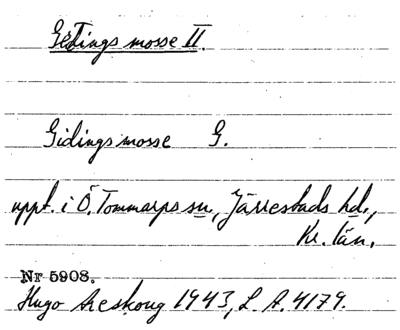 Getings mosse II.
Gidings mosse G.
uppt. i Ö. Tommarps sn, Järrestads hd.,
Kr. län.
Nr 5908.
Hugo Areskoug 1943, L.A. 4179.